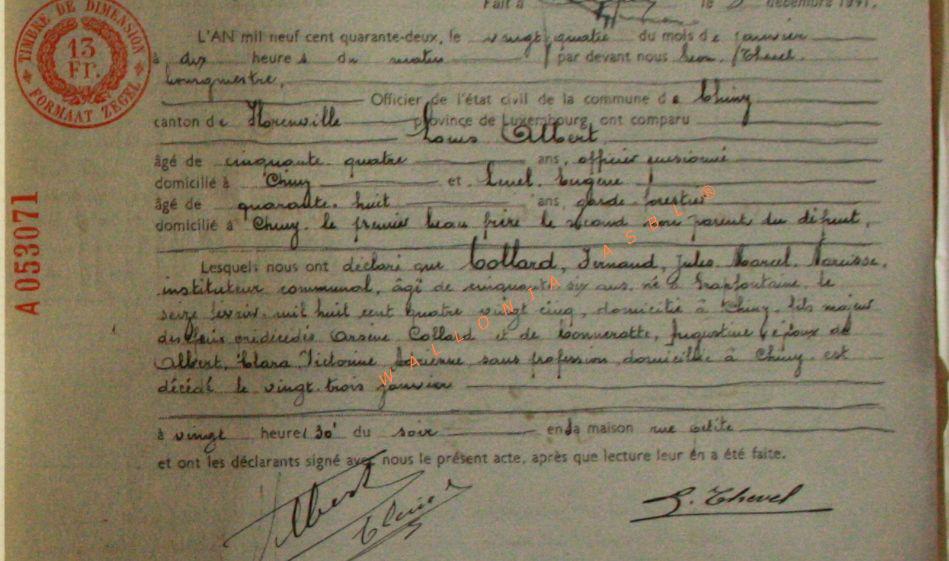 Fait à le décembre 1941.
TIMBRE DE DIMENSION
13 FR.
FORMAAT ZEGEL
A 053071
L'AN mil neuf cent quarante-deux, le vingt quatre du mois de janvier
à dix heures du matin par devant nous Léon Thevel.
bourgmestre,
Officier de l'état civil de la commune de Chiny
canton de Florenville province de Luxembourg, ont comparu
Louis Albert
âgé de cinquante quatre ans, officier pensionné
domicilié à Chiny et Eugène
âgé de quarante huit ans, garde forestier
domicilié à Chiny, le premier beau frère le second non parent du défunt,
Lesquels nous ont déclaré que Collard, Fernand, Jules, Marcel, Narcisse,
instituteur communal, âgé de cinquante six ans, né à Straimont, le
seize février mil huit cent quatre vingt cinq, domicilié à Chiny, fils majeur
des feux Arsène Collard et de Connerotte, Augustine, époux de
Albert, Clara, Victorine, sans profession, domiciliée à Chiny est
décédé le vingt trois janvier
à vingt heures 30' du soir en sa maison rue
et ont les déclarants signé avec nous le présent acte, après que lecture leur en a été faite.
Albert
L. Thevel
WALLONIA ASBL ®